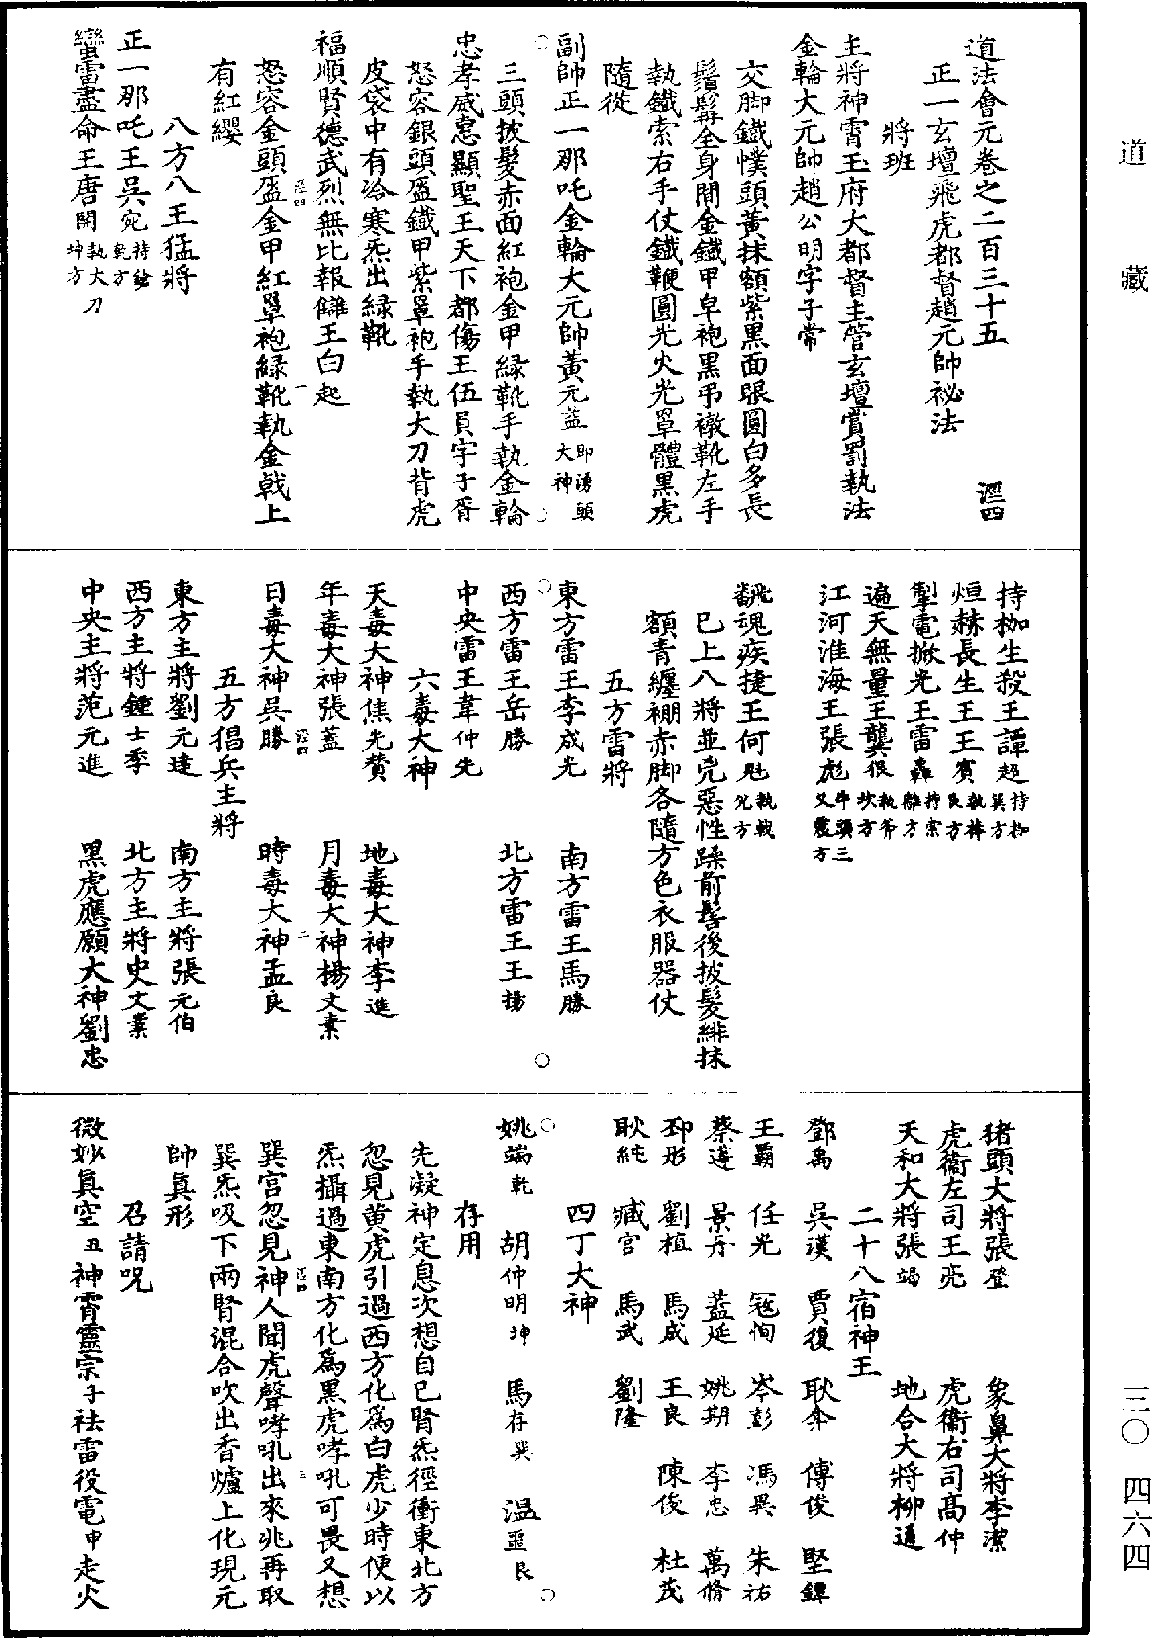 道法會元卷之二百三十五 涇四
正一玄壇飛虎都督趙元帥祕法
將班
主將神霄玉府大都督主管玄壇賞罰執法
金輪大元帥趙公明字子常
交脚鐵幞頭黃抹額紫黑面眼圓白多長
鬚髯全身間金鐵甲皁袍黑弔㡔靴左手
執鐵索右手仗鐵鞭圓光火光罩體黑虎
隨從
副帥正一那吒金輪大元帥黃元益即湧頭大神
三頭披髮赤面紅袍金甲綠靴手執金輪
忠孝威惠顯聖王天下都傷王伍員字子胥
怒容銀頭盔鐵甲紫罩袍手執大刀背虎
皮袋中有冷寒炁出綠靴
福順賢德武烈無比報讎王白起
怒容金頭盔金甲紅罩袍綠靴執金戟上
有紅纓
八方八王猛將
正一那吒王吳宛持鎗乾方
蠻雷盡命王唐開執大刀坤方
持枷生殺王譚超持枷巽方
烜赫長生王王賓執棒艮方
掣電掀光王雷轟持索離方
遍天無量王龔佷執斧坎方
江河淮海王張彪牛頭三叉震方
飜魂疾捷王何魁執戟兌方
已上八將並兇惡性躁前髻後披髮緋抹
額青纏裩赤脚各隨方色衣服器仗
五方雷將
東方雷王李成光 南方雷王馬勝
西方雷王岳勝 北方雷王王揚
中央雷王韋仲先
六毒大神
天毒大神焦光贊 地毒大神李進
年毒大神張蓋 月毒大神楊文素
日毒大神吳勝 時毒大神孟良
五方猖兵主將
東方主將劉元達 南方主將張元伯
西方主將鍾士季 北方主將史文業
中央主將范元進 黑虎應願大神劉忠
猪頭大將張登 象鼻大將李潔
虎衞左司王亮 虎衞右司高仲
天和大將張竭 地合大將柳通
二十八宿神王
鄧禹 吳漢 賈復 耿弇 傅俊 堅鐔
王霸 任光 寇恂 岑彭 馮異 朱祐
蔡遵 景丹 蓋延 姚期 李忠 萬脩
邳彤 劉植 馬成 王良 陳俊 杜茂
耿純 臧宮 馬武 劉隆
四丁大神
姚端乾 胡仲明坤 馬存巽 溫噩艮
存用
先凝神定息次想自已腎炁徑衝東北方
忽見黃虎引過西方化為白虎少時便以
炁攝過東南方化為黑虎哮吼可畏又想
巽宮忽見神人聞虎聲哮吼出來兆再取
巽炁吸下兩腎混合吹出香爐上化現元
帥真形
召請呪
微妙真空丑神霄靈宗子祛雷役電申走火
道藏
三〇 四六四